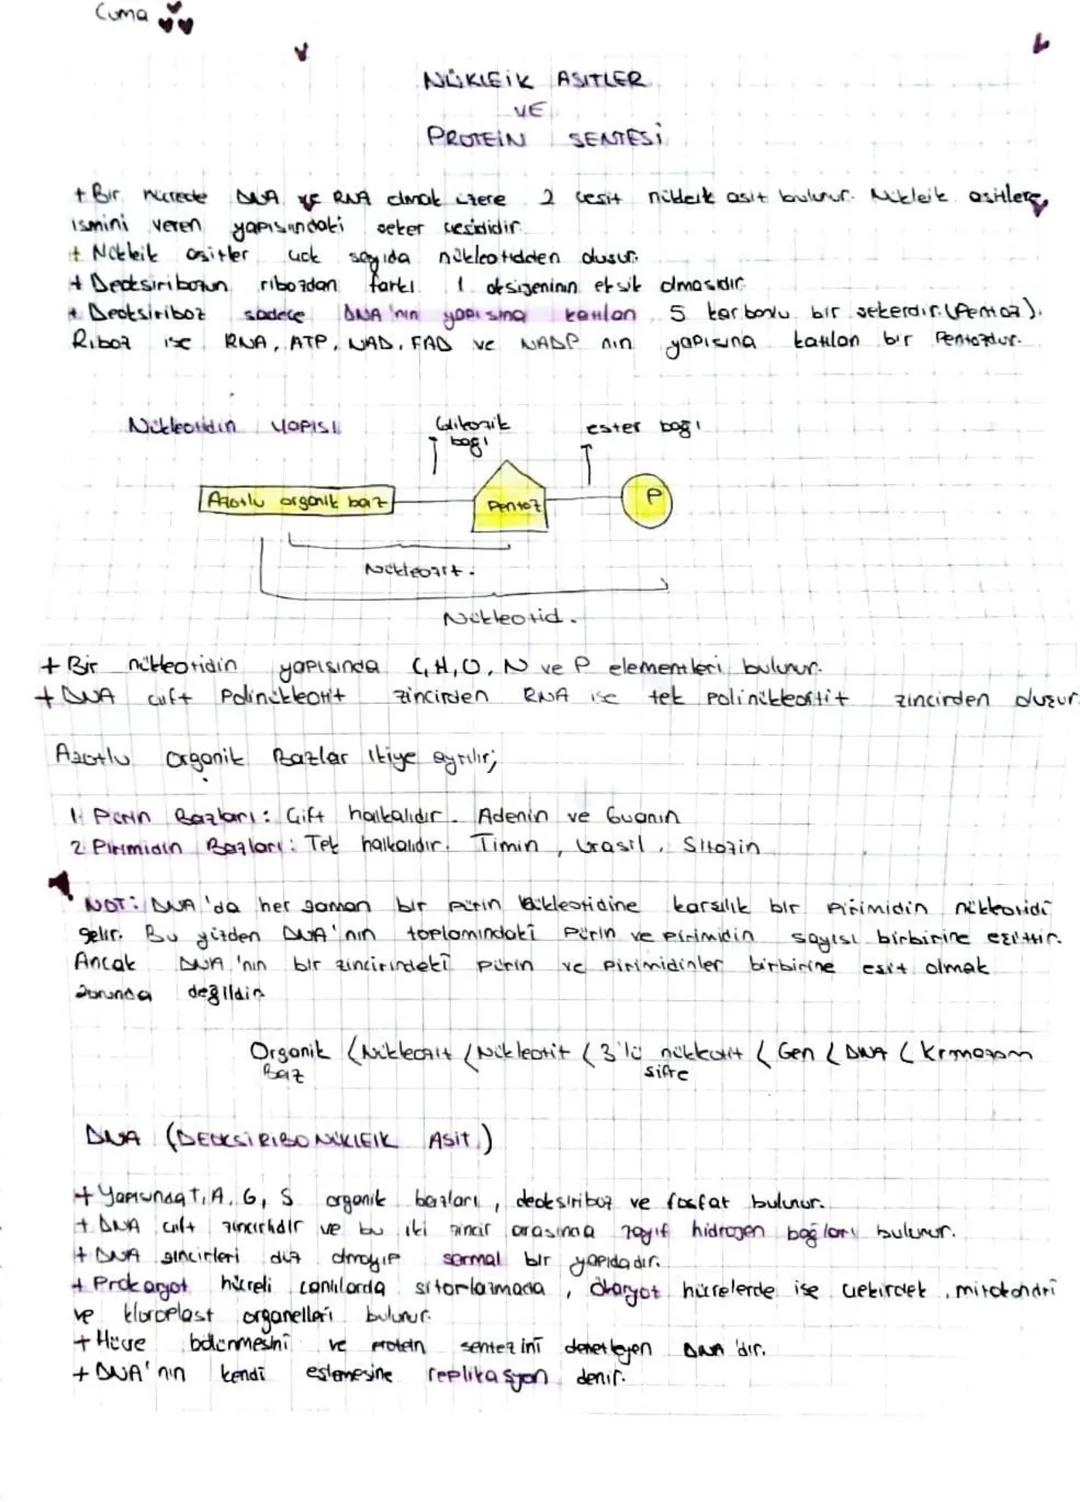 Cuma
NÜKLEİK ASİTLER
VE
PROTEİN SENTESİ
+ Bir hücrede DNA ve RNA olmak üzere 2 çeşit nükleik asit bulunur. Nükleik asitlere
ismini veren yapısındaki şeker çeşididir.
+ Nükleik asitler çok sayıda nükleotidden oluşur.
+ Deoksiribozun ribozdan farkı 1 oksijeninin eksik olmasıdır
+ Deoksiriboz sadece DNA'nın yapısına katılan 5 karbonlu bir şekerdir.(Pentoz).
Riboz ise RNA, ATP, NAD, FAD ve NADP nın yapısına katılan bir Pentozdur.
Nükleotidin YAPISI
Glikozik bağı
ester bağı
Azotlu organik baz
Pentoz
P
Nükleozit.
Nükleotid.
+ Bir nükleotidin yapısında C, H, O, N ve P elementleri bulunur.
+ DNA çift Polinükleotit zincirden RNA ise tek polinükleotit zincirden oluşur.
Azotlu Organik Bazlar ikiye ayrılır;
1. Pürin Bazları: Çift halkalıdır. Adenin ve Guanin
2. Pirimidin Bazları: Tek halkalıdır. Timin, Urasil, Sitozin
NOT: DNA'da her zaman bir pürin nükleotidine karşılık bir pirimidin nükleotidi
gelir. Bu yüzden DNA'nın toplamındaki Pürin ve pirimidin sayısı birbirine eşittir.
Ancak DNA'nın bir zincirindeki pürin ve pirimidinler birbirine eşit olmak
zorunda değildir
Organik Baz < Nükleozit < Nükleotit < 3'lü nükleotit şifre < Gen < DNA < Krmozom
DNA (DEOKSİRİBONÜKLEİK ASİT)
+ Yapısında T, A, G, S organik bazları, deoksiriboz ve fosfat bulunur.
+ DNA çift zincirlidir ve bu iki zincir arasında zayıf hidrojen bağları bulunur.
+ DNA zincirleri düz olmayıp sarmal bir yapıdadır.
+ Prokaryot hücreli canlılarda sitoplazmada, ökaryot hücrelerde ise çekirdek, mitokondri
ve kloroplast organelleri bulunur.
+ Hücre bölünmesini ve protein sentezini denetleyen DNA'dır.
+ DNA'nın kendi eşlemesine replikasyon denir.